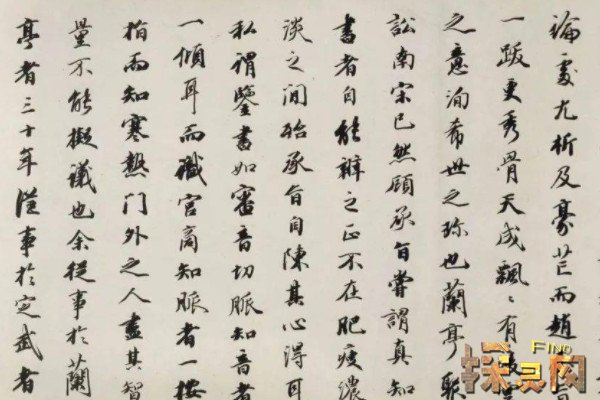 論處尤析及豪芒而趙
一跋更秀骨天成飄〻有
之意洵希世之珎也蘭亭聚
訟南宋已然顧承旨嘗謂真知
書者自能辨之正不在肥瘦濃
淡之間殆承旨自陳其心得耳
私謂鑒書如審音切脈知音者
一傾耳而識宮商知脈者一按
指而知寒熱門外之人盡其智
量不能擬議也余從事於蘭
亭者三十年從事於定武者
FIND
探灵网